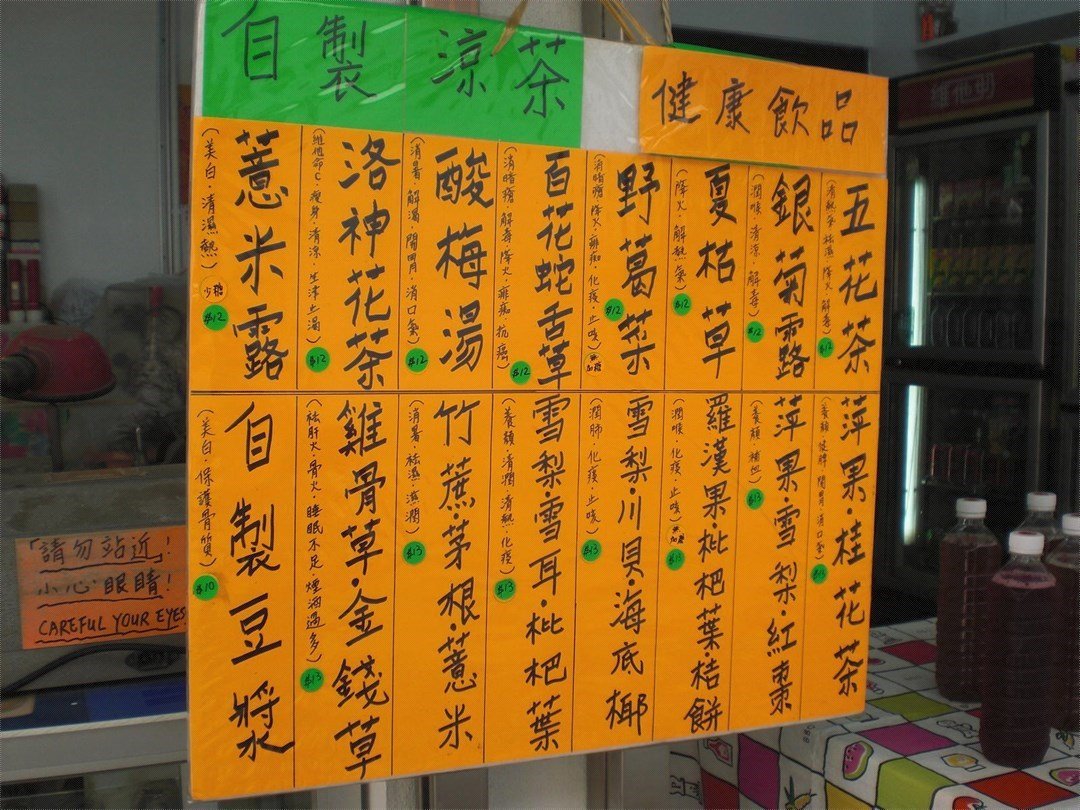 自製涼茶
健康飲品
五花茶
(清熱氣·祛濕·降火·解毒)
$12
銀菊露
(潤喉·清涼·解毒)
$12
夏枯草
(降火·解熱氣)
$12
野葛菜
(消暗瘡·降火·化痰·止咳)
$12
百花蛇舌草
(消暗瘡·解毒·降火·抗癌)
$12
酸梅湯
(消暑·解渴·開胃·消口氣)
$12
洛神花茶
(維他命C·瘦身·清涼·生津止渴)
$12
薏米露
(美白·清濕熱)
少糖
$12
萍果·桂花茶
(養顏·健脾·開胃·消口氣)
$13
萍果·雪梨·紅棗
(養顏·補血)
$13
羅漢果·枇杷葉·桔餅
(潤喉·化痰·止咳)
$13
雪梨·川貝·海底椰
(潤肺·化痰·止咳)
$13
雪梨·雪耳·枇杷葉
(養顏·清潤·清熱·化痰)
$13
竹蔗·茅根·薏米
(消暑·祛濕·滋潤)
$13
雞骨草·金錢草
(祛肝火·骨火·睡眠不足·煙酒過多)
$13
自製豆漿
(美白·保護骨質)
$10
「請勿站近」!
小心眼睛!
CAREFUL YOUR EYES
維他奶